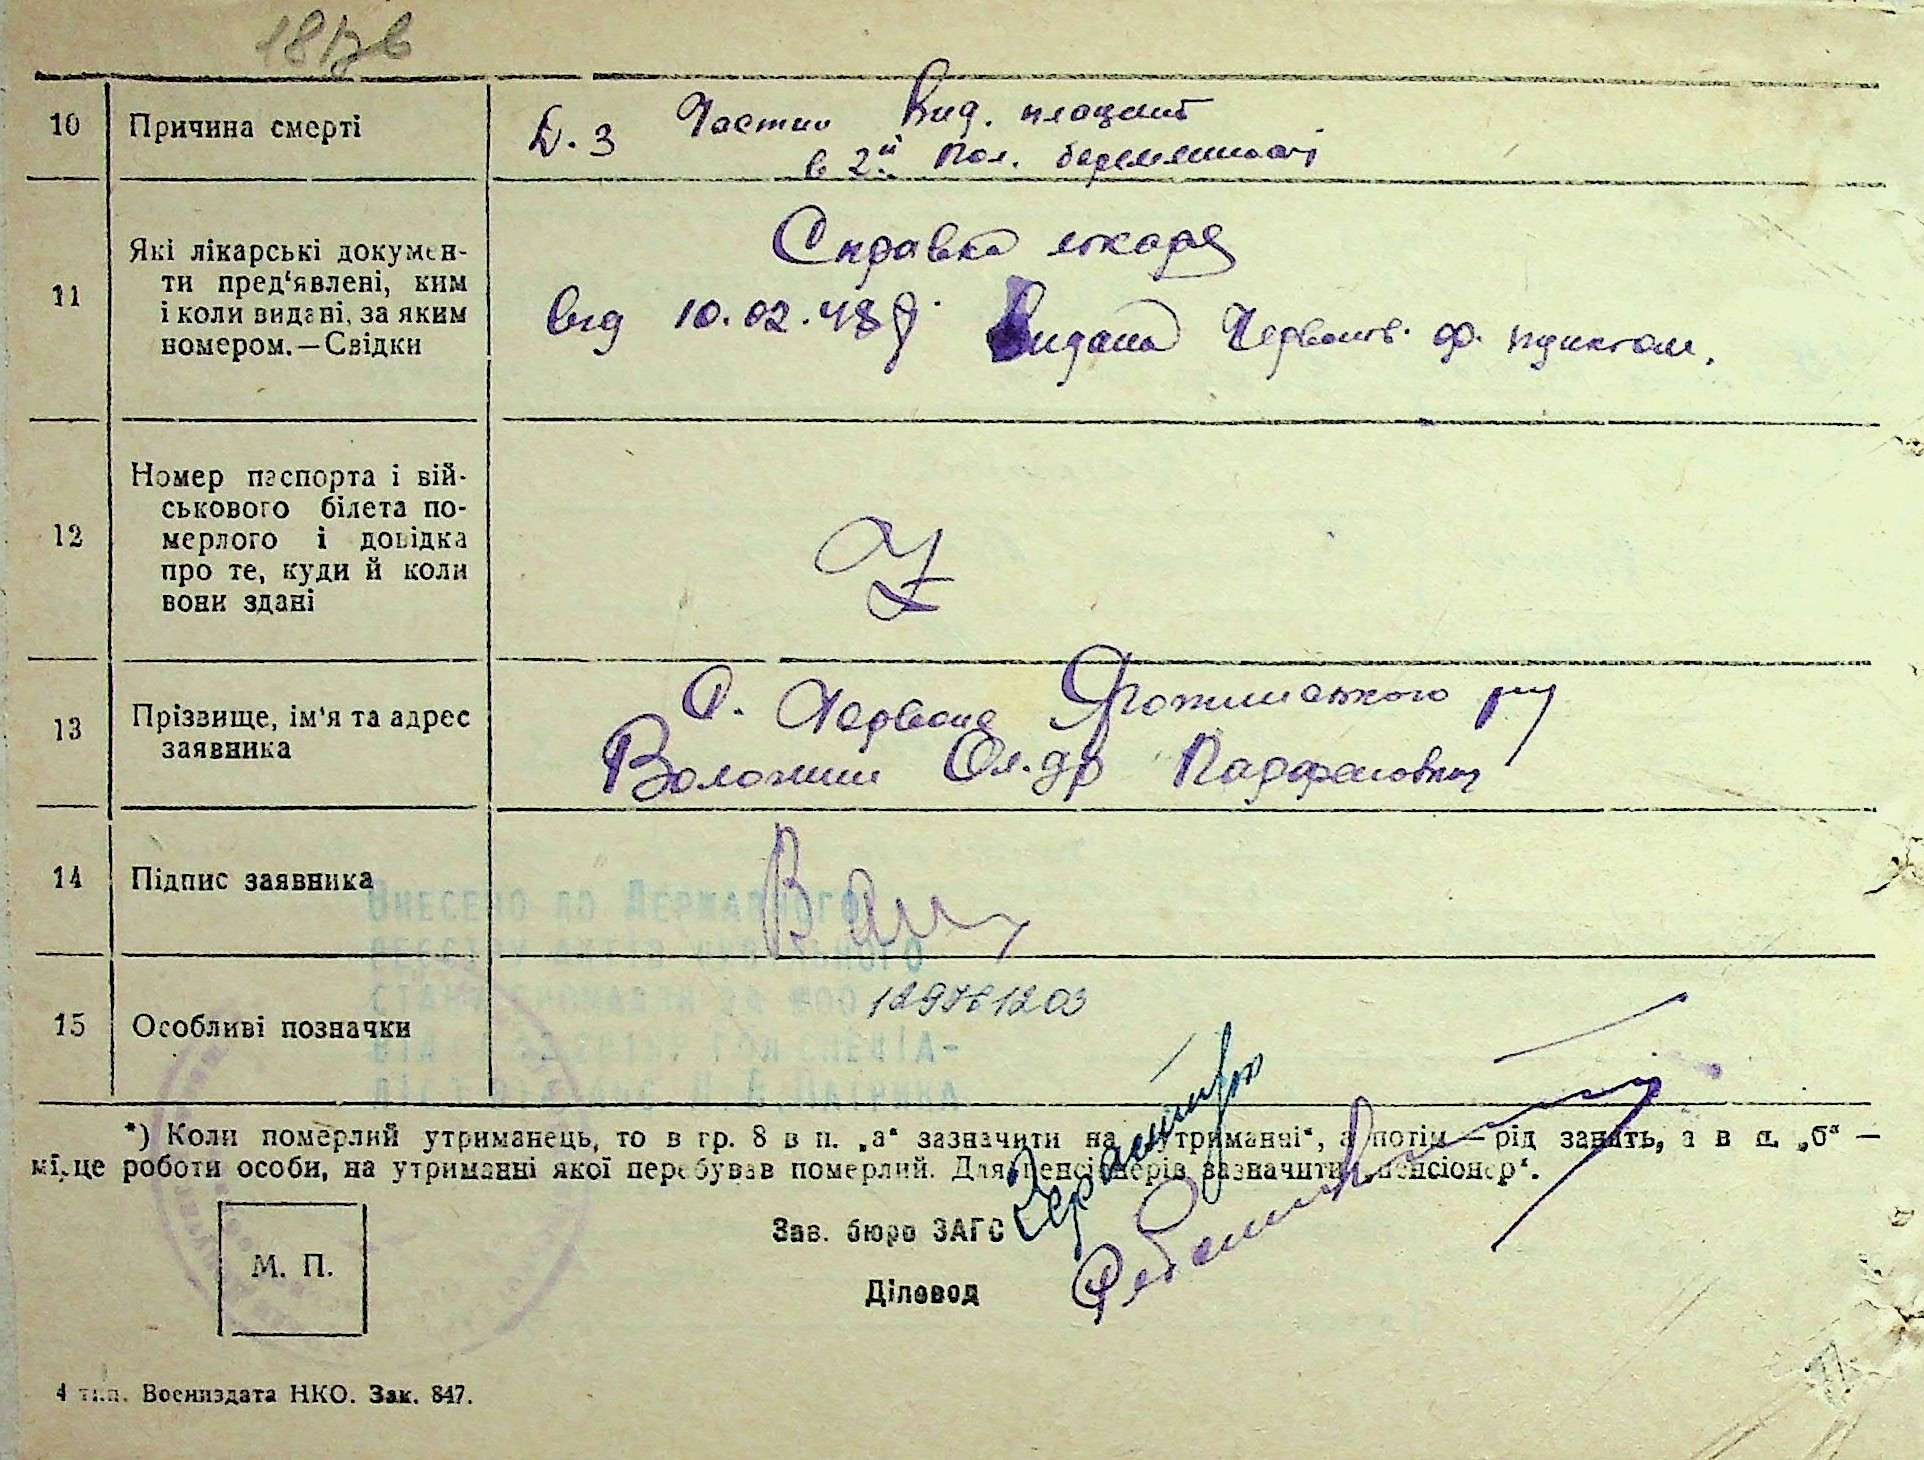 181зв
10 Причина смерті
Д. З Частич Вид. плацент
в 2й пол. беременност
11 Які лікарські докумен-
ти пред‘явлені, ким
і коли видані, за яким
номером.—Свідки
Справка лікаря
від 10.02.48 р. Видана Червонів. ф. пунктом.
12 Номер паспорта і вій-
ськового білета по-
мерлого і довідка
про те, куди й коли
вони здані
13 Прізвище, ім‘я та адрес
заявника
С. Червоне р-ну
Воложин Ол-др Парфенович
14 Підпис заявника
Внесено до Державного
реєстру актів цивільного
стану громадян за №00 129761203
15 Особливі позначки
*) Коли померлий утриманець, то в гр. 8 в п. „а“ зазначити на „утриманні“, а потім — рід занять, а в п. „б“ —
місце роботи особи, на утриманні якої перебував померлий. Для пенсіонерів зазначити „пенсіонер“.
Зав. бюро ЗАГС
М. П.
Діловод
4 тип. Воениздата НКО. Зак. 847.